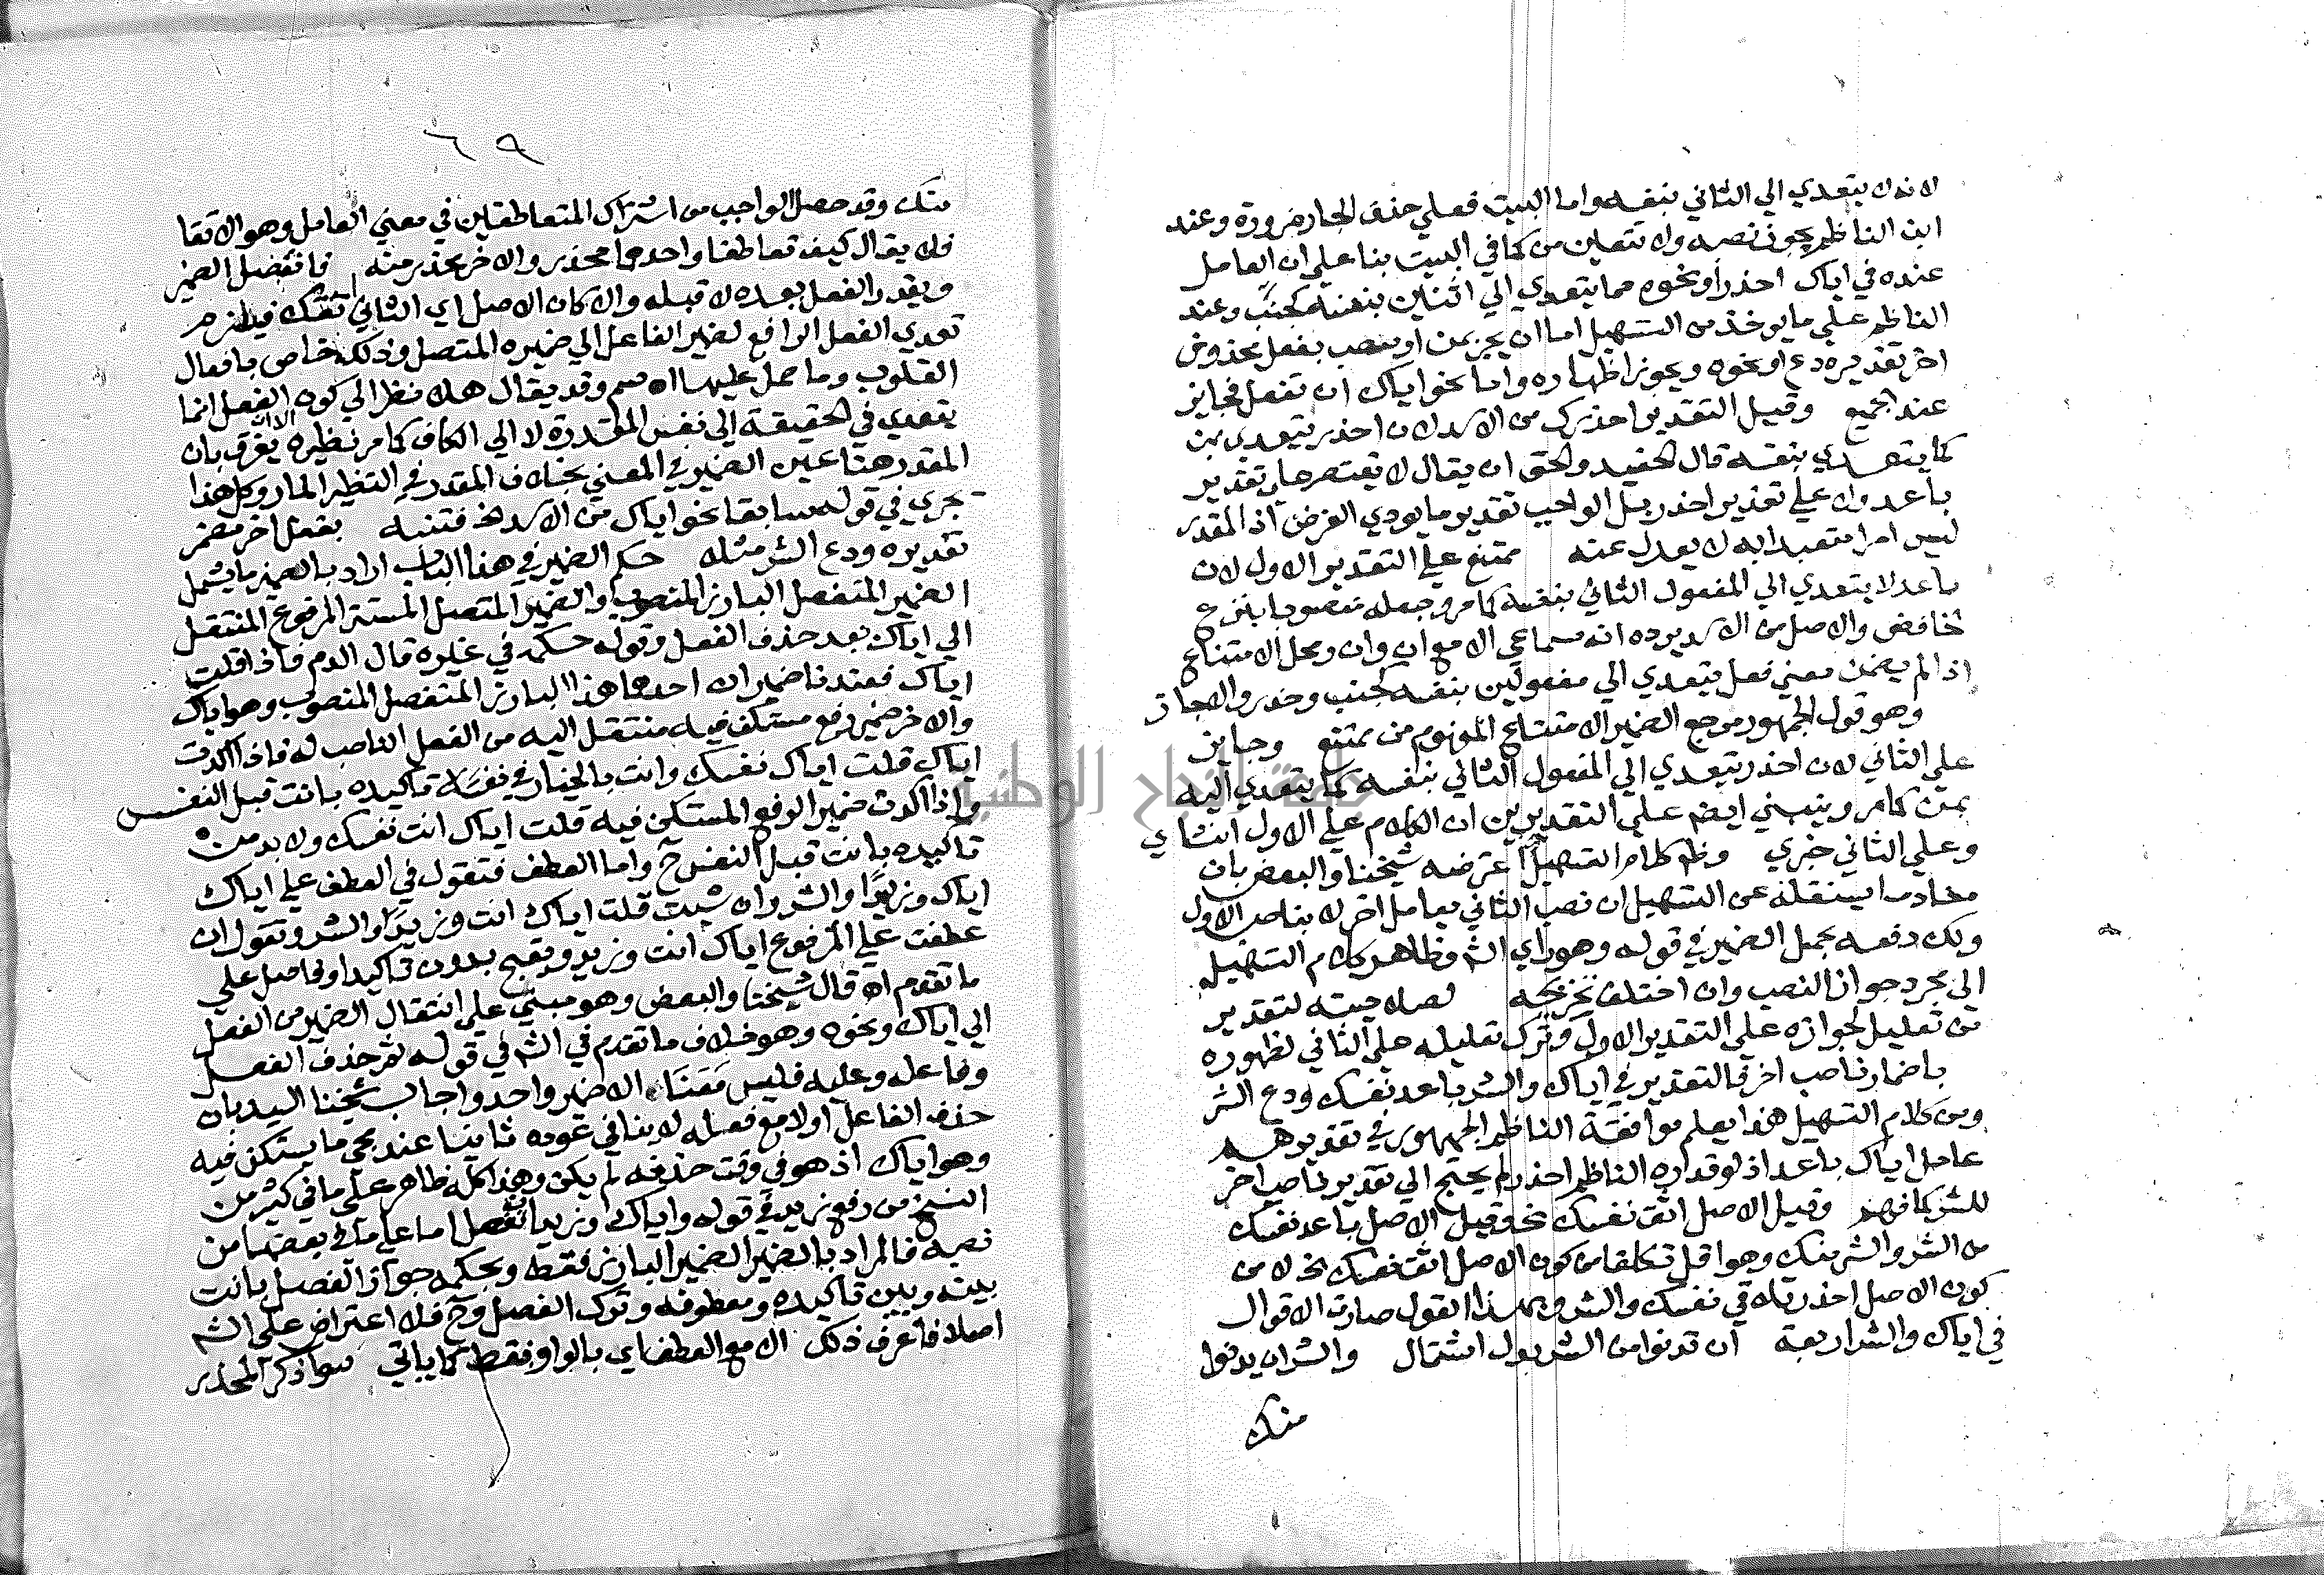 لانه لا يتعدي الي الثاني بنفسه واما البيت فعلي حذف الجار ضرورة وعند
ابن الناظم يجوز نصبه ولا تتعين من كما في البيت بنا علي ان العامل
عنده في اياك احذر او نحوه مما يتعدي الي اثنين بنفسه كجنب وعند
الناظم علي ما يوخذ من التسهيل اما ان يجر بمن او ينصب بفعل محذوف
اخر تقديره دع او نحوه ويجوز اظهاره واما نحو اياك ان تفعل فجايز
عند الجميع وقيل التقدير احذرك من الاسد لان احذر يتعدي بمن
كما يتعدي بنفسه قال الحفيد والحق ان يقال لا يقتصر علي تقدير
باعد ولا علي تقدير احذر بل الواجب تقدير ما يودي الغرض اذ المقدر
ليس امرا متعبدا به لا يعدل عنه ممتنع علي التقدير الاول لان
باعد لا يتعدي الي المفعول الثاني بنفسه كما مر وجعله منصوبا بنزع
الخافض والاصل من الاسد يرده انه سماعي الا مع ان وان ومحل الامتناع
اذا لم يضمن معني فعل يتعدي الي مفعولين بنفسه كجنب وحذر والا جاز
وهو قول الجمهور مرجع الضمير الامتناع المفهوم من يمتنع وجايز
علي الثاني لان احذر يتعدي الي المفعول الثاني بنفسه كما يتعدي اليه
بمن كما مر وينبني ايضم علي التقديرين ان الكلام علي الاول انشاي
وعلي الثاني خبري وظم كلام التسهيل اعترضه شيخنا والبعض بان
مفاد ما سينقله عن التسهيل ان نصب الثاني بعامل اخر لا بناصب الاول
ولك دفعه بجعل الضمير في قوله وهو راي الشم وظاهر كلام التسهيل
الي مجرد جواز النصب وان اختلف تخريجه لصلاحيته لتقدير
من تعليل لجوازه علي التقدير الاول وترك تعليله علي الثاني لظهوره
باضمار ناصب اخر فالتقدير في اياك والشر باعد نفسك ودع الشر
ومن كلام التسهيل هذا يعلم موافقة الناظم الجمهور في تقديرهم
عامل اياك باعد اذ لو قدره الناظم احذر لم يحتج الي تقدير ناصب اخر
للشر كما فهم وقيل الاصل اتق نفسك نحو وقيل الاصل باعد نفسك
من الشر والشر منك وهو اقل تكلفا من كون الاصل اتق نفسك الخ لا من
كون الاصل احذر تلاقي نفسك والشر وبهذا القول صارت الاقوال
في اياك والشر اربعة ان تدنوا من الشر بدل اشتمال والشر ان يدنوا
منك
٦٩
منك وقد حصل الواجب من اشتراك المتعاطفين في معني العامل وهو الاتقا
فلا يقال كيف تعاطفا واحدهما محذر والاخر محذر منه فانفصل الضمير
ويقدر الفعل بعده لا قبله والا كان الاصل اي الثاني اتقك فيلزم
تعدي الفعل الرافع لضمير الفاعل الي ضميره المتصل وذلك خاص بافعال
القلوب وما حمل عليها اه سم وقد يقال هلا نظر الي كون الفعل انما
يتعدي في الحقيقة الي نفس المقدرة لا الي الكاف كما مر نظيره الا ان يفرق بان
المقدر هنا عين الضمير في المعني بخلاف المقدر في التنظير المار وكل هذا
يجري في قوله سابقا نحو اياك من الاسد الخ فتنبه بفعل اخر مضمر
تقديره ودع الشر مثله حكم الضمير في هذا الباب اراد بالضمير ما يشمل
الضمير المنفصل البارز المنصوب والضمير المتصل المستتر المرفوع المنتقل
الي اياك بعد حذف الفعل وقوله حكمه في غيره قال الدم فاذا قلت
اياك فعندنا ضميران احدهما هذا البارز المنفصل المنصوب وهو اياك
والاخر ضمير رفع مستكن فيه منتقل اليه من الفعل الناصب له فاذا اكدت
اياك قلت اياك نفسك وانت بالخيار في نفسك تاكيده بانت قبل النفس
واذا اكدت ضمير الرفع المستكن فيه قلت اياك انت نفسك ولا بد من
تاكيده بانت قبل النفس ح واما العطف فتقول في العطف علي اياك
اياك وزيدا والشر وان شيت قلت اياك انت وزيدا والشر وتقول ان
عطفت علي المرفوع اياك انت وزيد ويقبح بدون تاكيد او فاصل علي
ما تقدم اه قال شيخنا والبعض وهو مبني علي انتقال الضمير من الفعل
الي اياك ونحوه وهو خلاف ما تقدم في الشم في قوله ثم حذف الفعل
وفاعله وعليه فليس معنا الا ضمير واحد واجاب شيخنا السيد بان
حذف الفاعل اولا مع فعله لا ينافي عوده ثانيا عند مجي ما يستكن فيه
وهو اياك اذ هو في وقت حذفه لم يكن وهذا كله ظاهر علي ما في كثير من
النسخ من رفع زيد في قوله واياك وزيد انت تفصل اما علي ما في بعضها من
نصبه فالمراد بالضمير الضمير البارز فقط وبحكمه جواز الفصل بانت
بينه وبين تاكيده ومعطوفه وترك الفصل وح فلا اعتراض علي الشم
اصلا فاعرف ذلك الا مع العطف اي بالواو فقط كما ياتي سوا ذكر المحذر